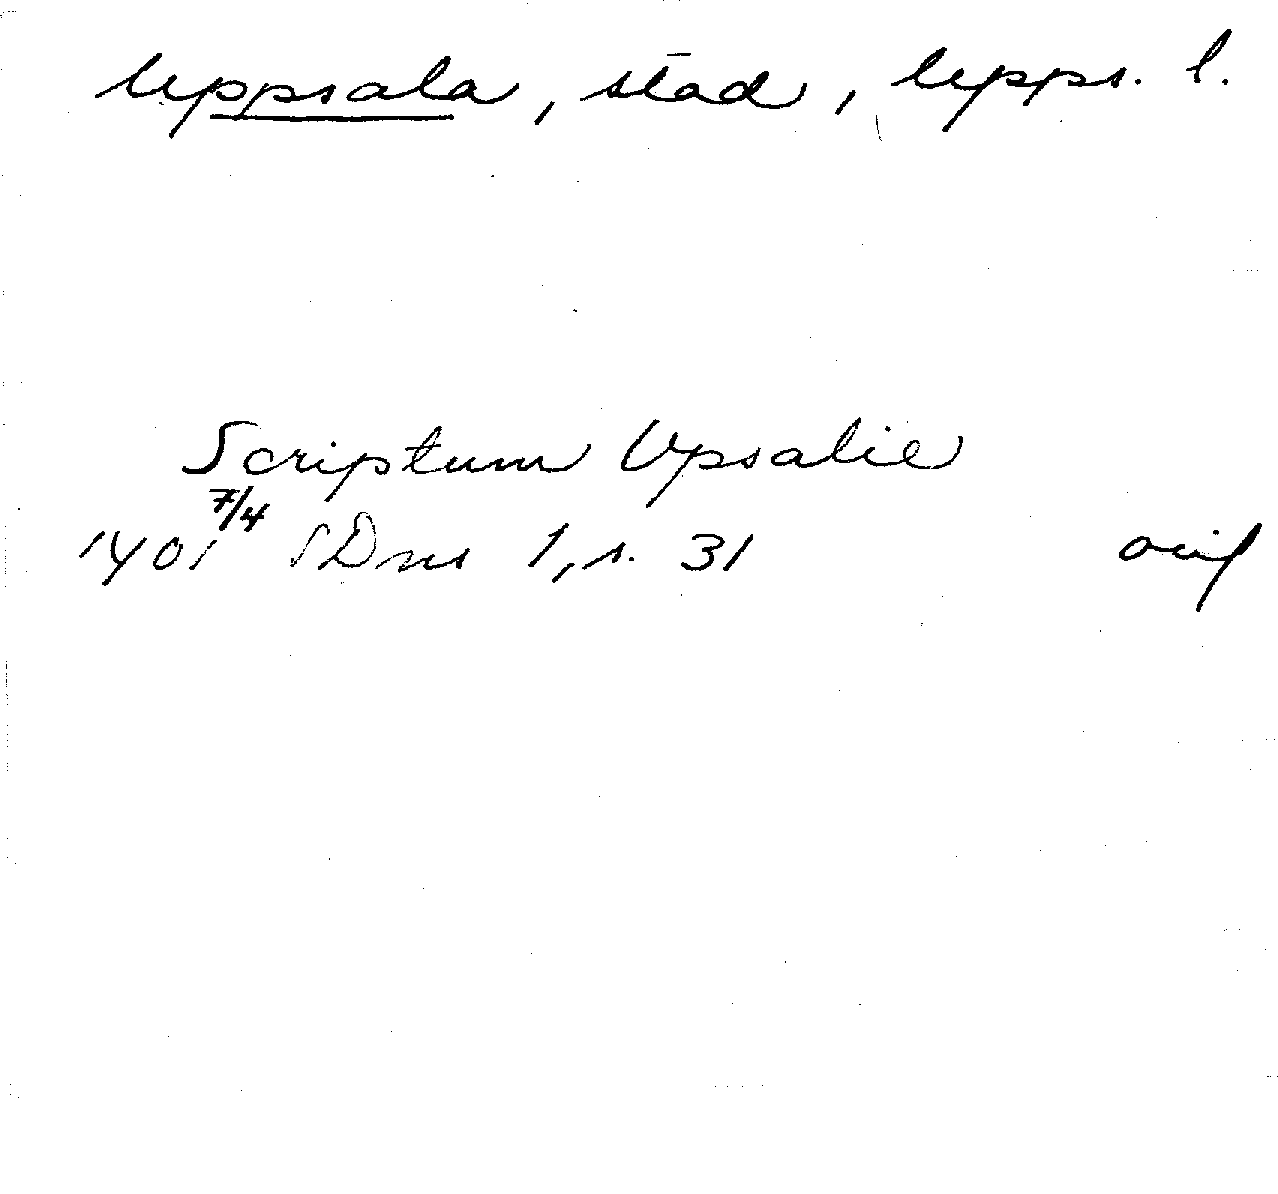 Uppsala, stad, Upps. l.
Scriptum Upsalie
7/4
1401 SDns 1, s. 31 orig